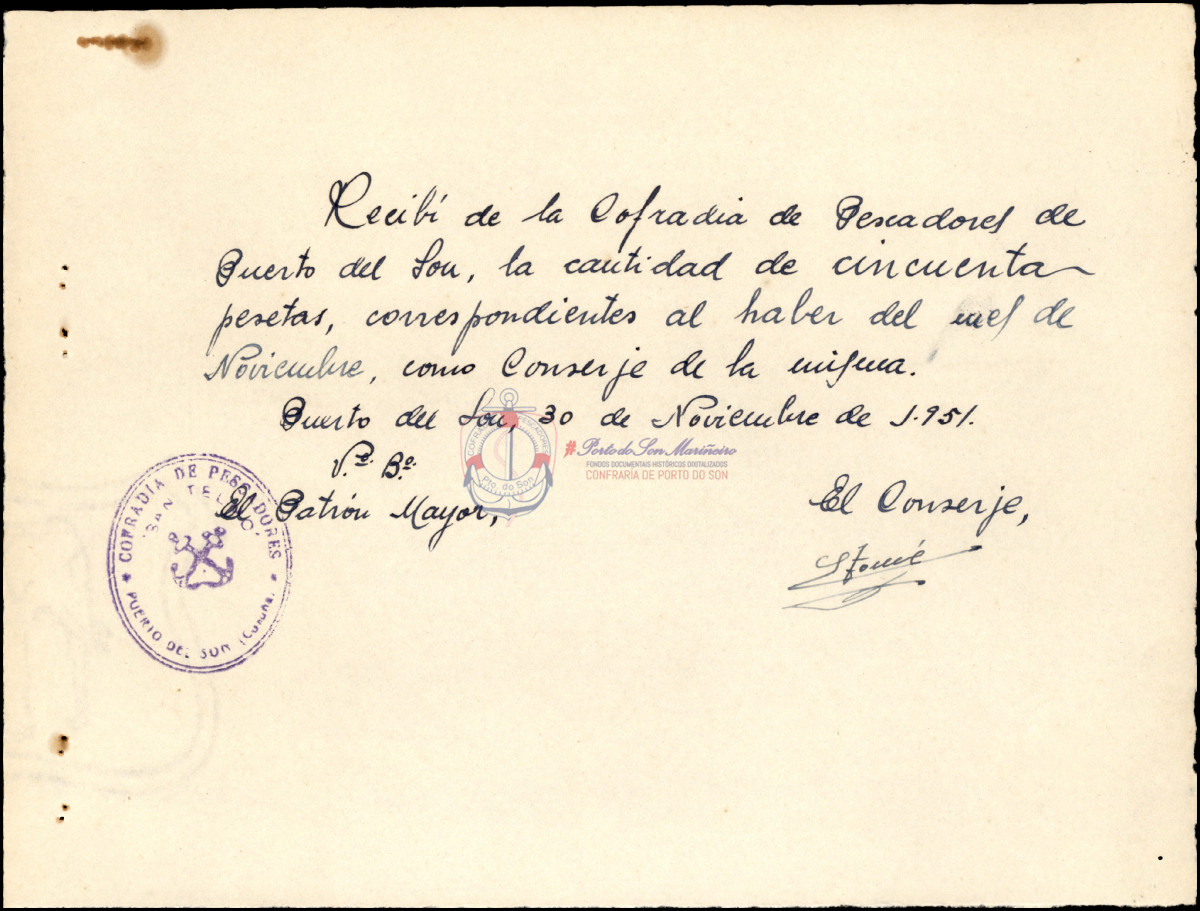 Recibí de la Cofradia de Pescadores de
Puerto del Son, la cantidad de cincuenta
pesetas, correspondientes al haber del mes de
Noviembre, como Conserje de la misma.
Puerto del Son, 30 de Noviembre de 1.951.
V.º B.º
El Patrón Mayor,
El Conserje,
COFRADÍA DE PESCADORES
"SAN TELMO"
PUERTO DEL SON (Coruña)
COFRARÍA PESCADORES
Pto. do Son
#Porto do Son Mariñeiro
FONDOS DOCUMENTAIS HISTÓRICOS DIXITALIZADOS
CONFRARÍA DE PORTO DO SON